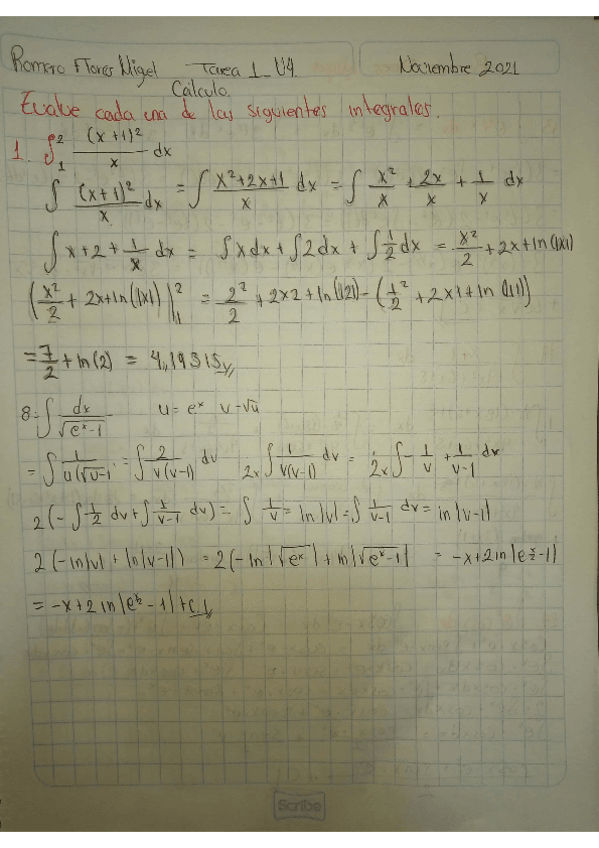 Romero Flores Migel Tarea 1_U4 Noviembre 2021
Calculo.
Evalue cada una de las siguientes integrales.
1. ∫₁² (x+1)²/x dx
∫ (x+1)²/x dx = ∫ x²+2x+1/x dx = ∫ x²/x + 2x/x + 1/x dx
∫ x+2+1/x dx = ∫xdx + ∫2dx + ∫1/2 dx = x²/2 + 2x + ln(|x|)
(x²/2 + 2x+ln(|x|)|₁² = 2²/2 + 2x2 + ln(|2|) - (1²/2 + 2x1 + ln(|1|))
= 7/2 + ln(2) = 4,19315
8- ∫ dx/√eˣ-1 u = eˣ v-√u
= ∫ 1/u(√u-1 = ∫ 2/v(v-1) dv 2x ∫ 1/v(v-1) dv = 2x ∫ - 1/v + 1/v-1 dx
2(-∫1/2 dv + ∫1/v-1 dv) = ∫ 1/v = ln|v| = ∫ 1/v-1 dv = ln|v-1|
2(-ln|v| + ln|v-1|) = 2(-ln|√eˣ| + ln|√eˣ-1| = -x+2ln|e^x/2-1|